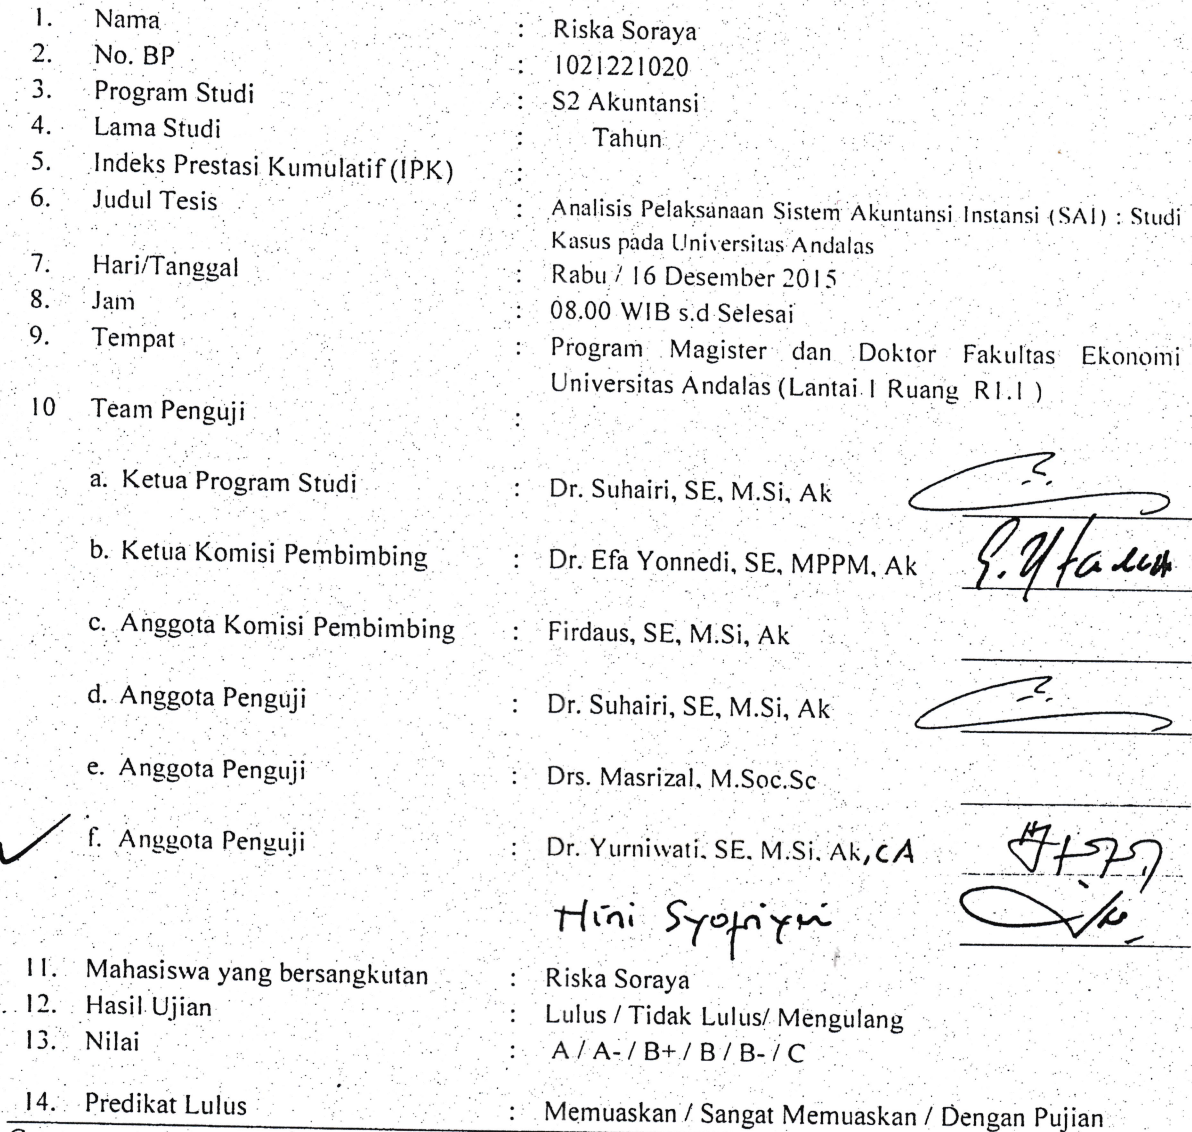 1. Nama : Riska Soraya
2. No. BP : 1021221020
3. Program Studi : S2 Akuntansi
4. Lama Studi : Tahun
5. Indeks Prestasi Kumulatif (IPK) :
6. Judul Tesis : Analisis Pelaksanaan Sistem Akuntansi Instansi (SAI) : Studi
Kasus pada Universitas Andalas
7. Hari/Tanggal : Rabu / 16 Desember 2015
8. Jam : 08.00 WIB s.d Selesai
9. Tempat : Program Magister dan Doktor Fakultas Ekonomi
Universitas Andalas (Lantai 1 Ruang R1.1 )
10 Team Penguji :
a. Ketua Program Studi : Dr. Suhairi, SE, M.Si, Ak
b. Ketua Komisi Pembimbing : Dr. Efa Yonnedi, SE, MPPM, Ak
c. Anggota Komisi Pembimbing : Firdaus, SE, M.Si, Ak
d. Anggota Penguji : Dr. Suhairi, SE, M.Si, Ak
e. Anggota Penguji : Drs. Masrizal, M.Soc.Sc
f. Anggota Penguji : Dr. Yurniwati, SE, M.Si, Ak, CA
11. Mahasiswa yang bersangkutan : Riska Soraya
12. Hasil Ujian : Lulus / Tidak Lulus/ Mengulang
13. Nilai : A / A- / B+ / B / B- / C
14. Predikat Lulus : Memuaskan / Sangat Memuaskan / Dengan Pujian